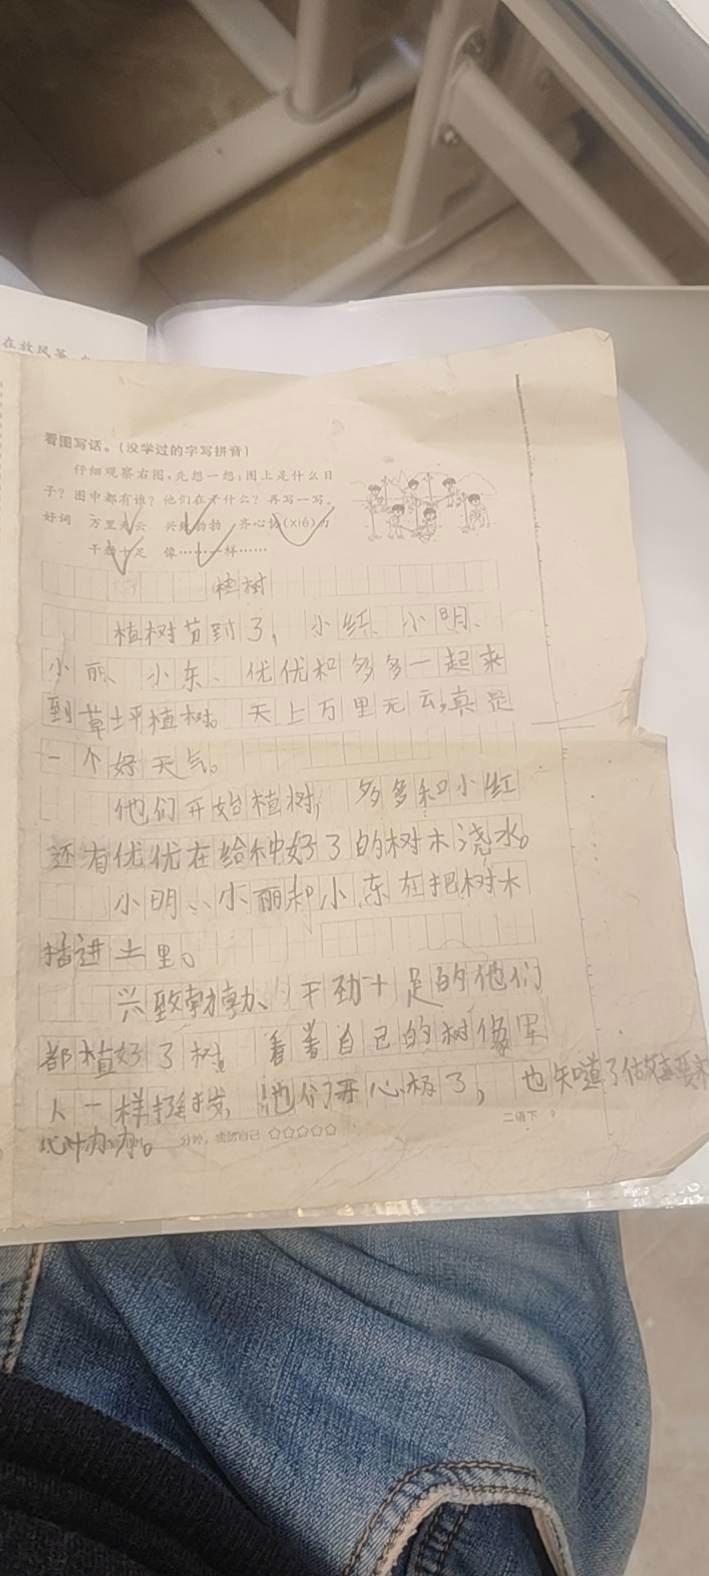 在放风筝
看图写话。(没学过的字写拼音)
仔细观察右图,先想一想:图上是什么日
子?图中都有谁?他们在干什么?再写一写。
好词 万里无云 兴致勃勃 齐心协(xié)力
干劲十足 像……一样……
植树
植树节到了,小红、小明、
小丽、小东、优优和多多一起来
到草坪植树。天上万里无云,真是
一个好天气。
他们开始植树,多多和小红
还有优优在给种好了的树木浇水。
小明、小丽和小东在把树木
插进土里。
兴致勃勃、干劲十足的他们
都植好了树。看着自己的树像军
人一样挺拔,他们开心极了,也知道了做事要齐
心协力。
二语下